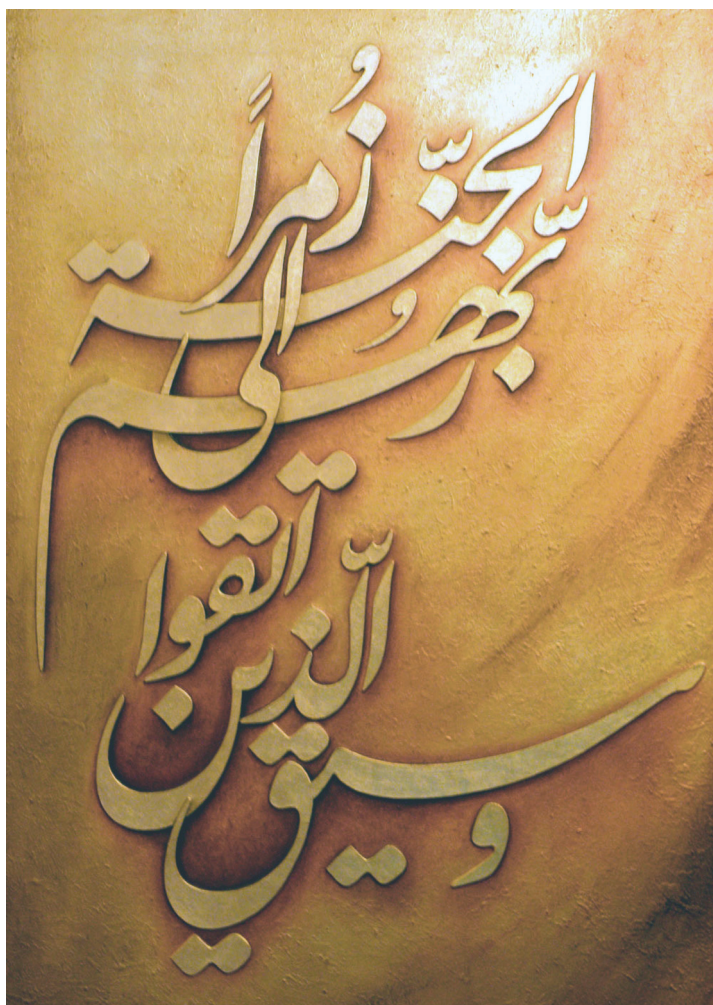 وسیق
الّذین
اتقوا
ربّهم
الی
الجنّة
زُمراً